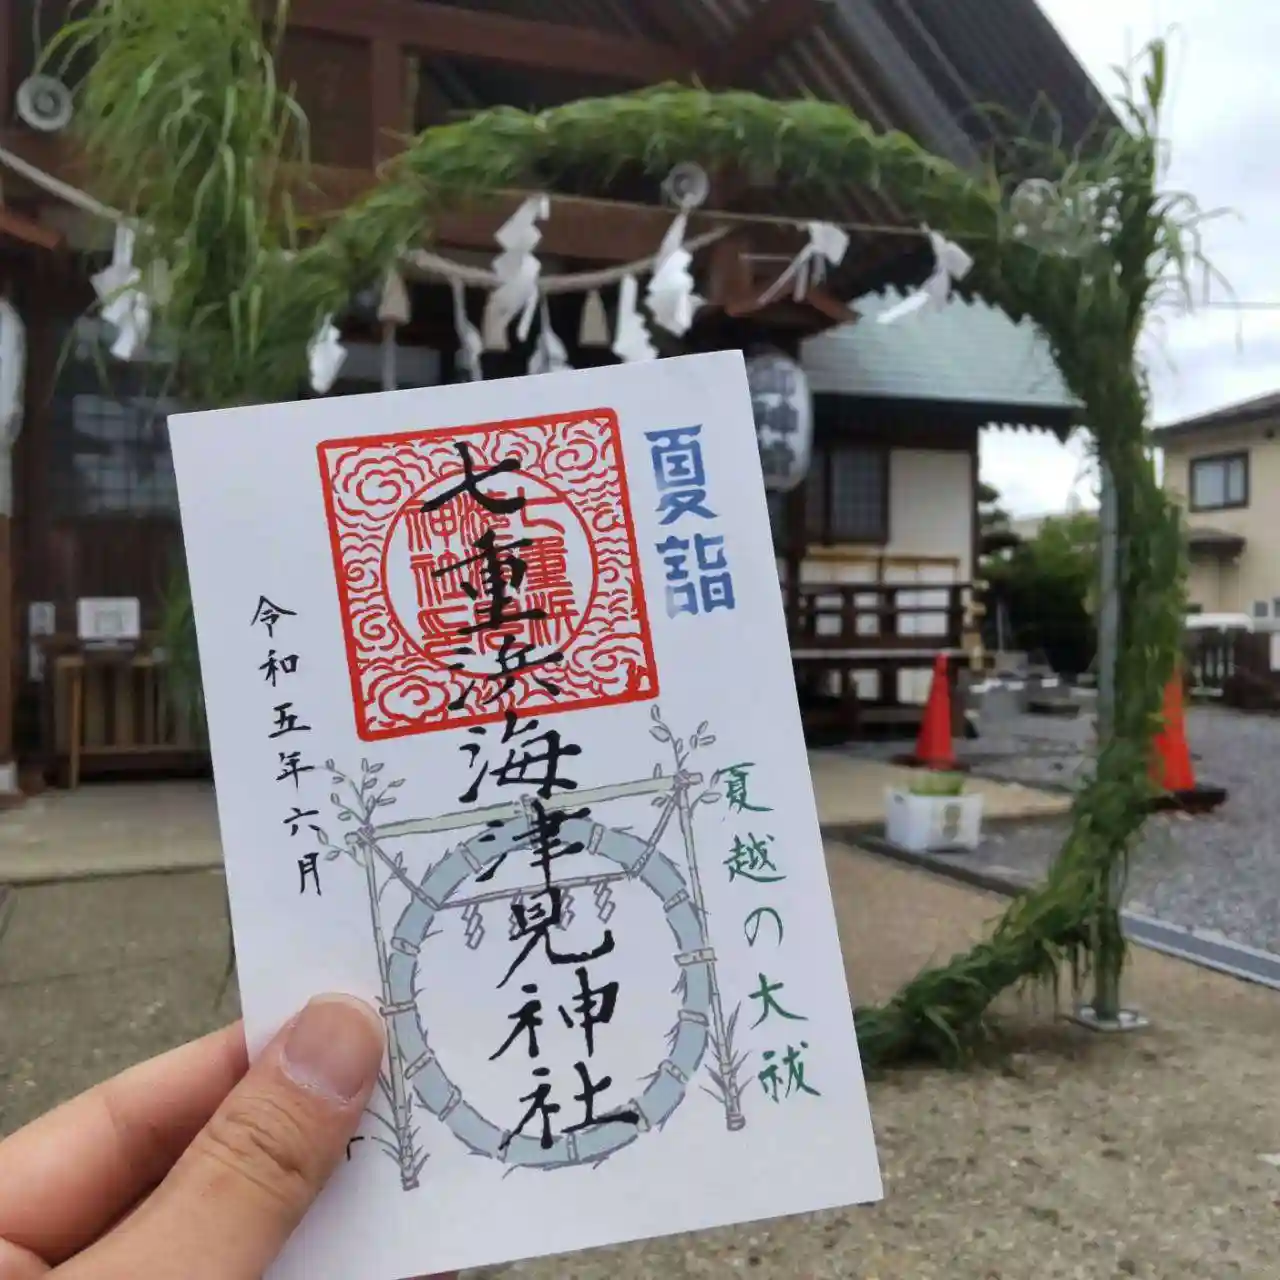 夏詣
夏越の大祓
七重浜海津見神社
令和五年六月